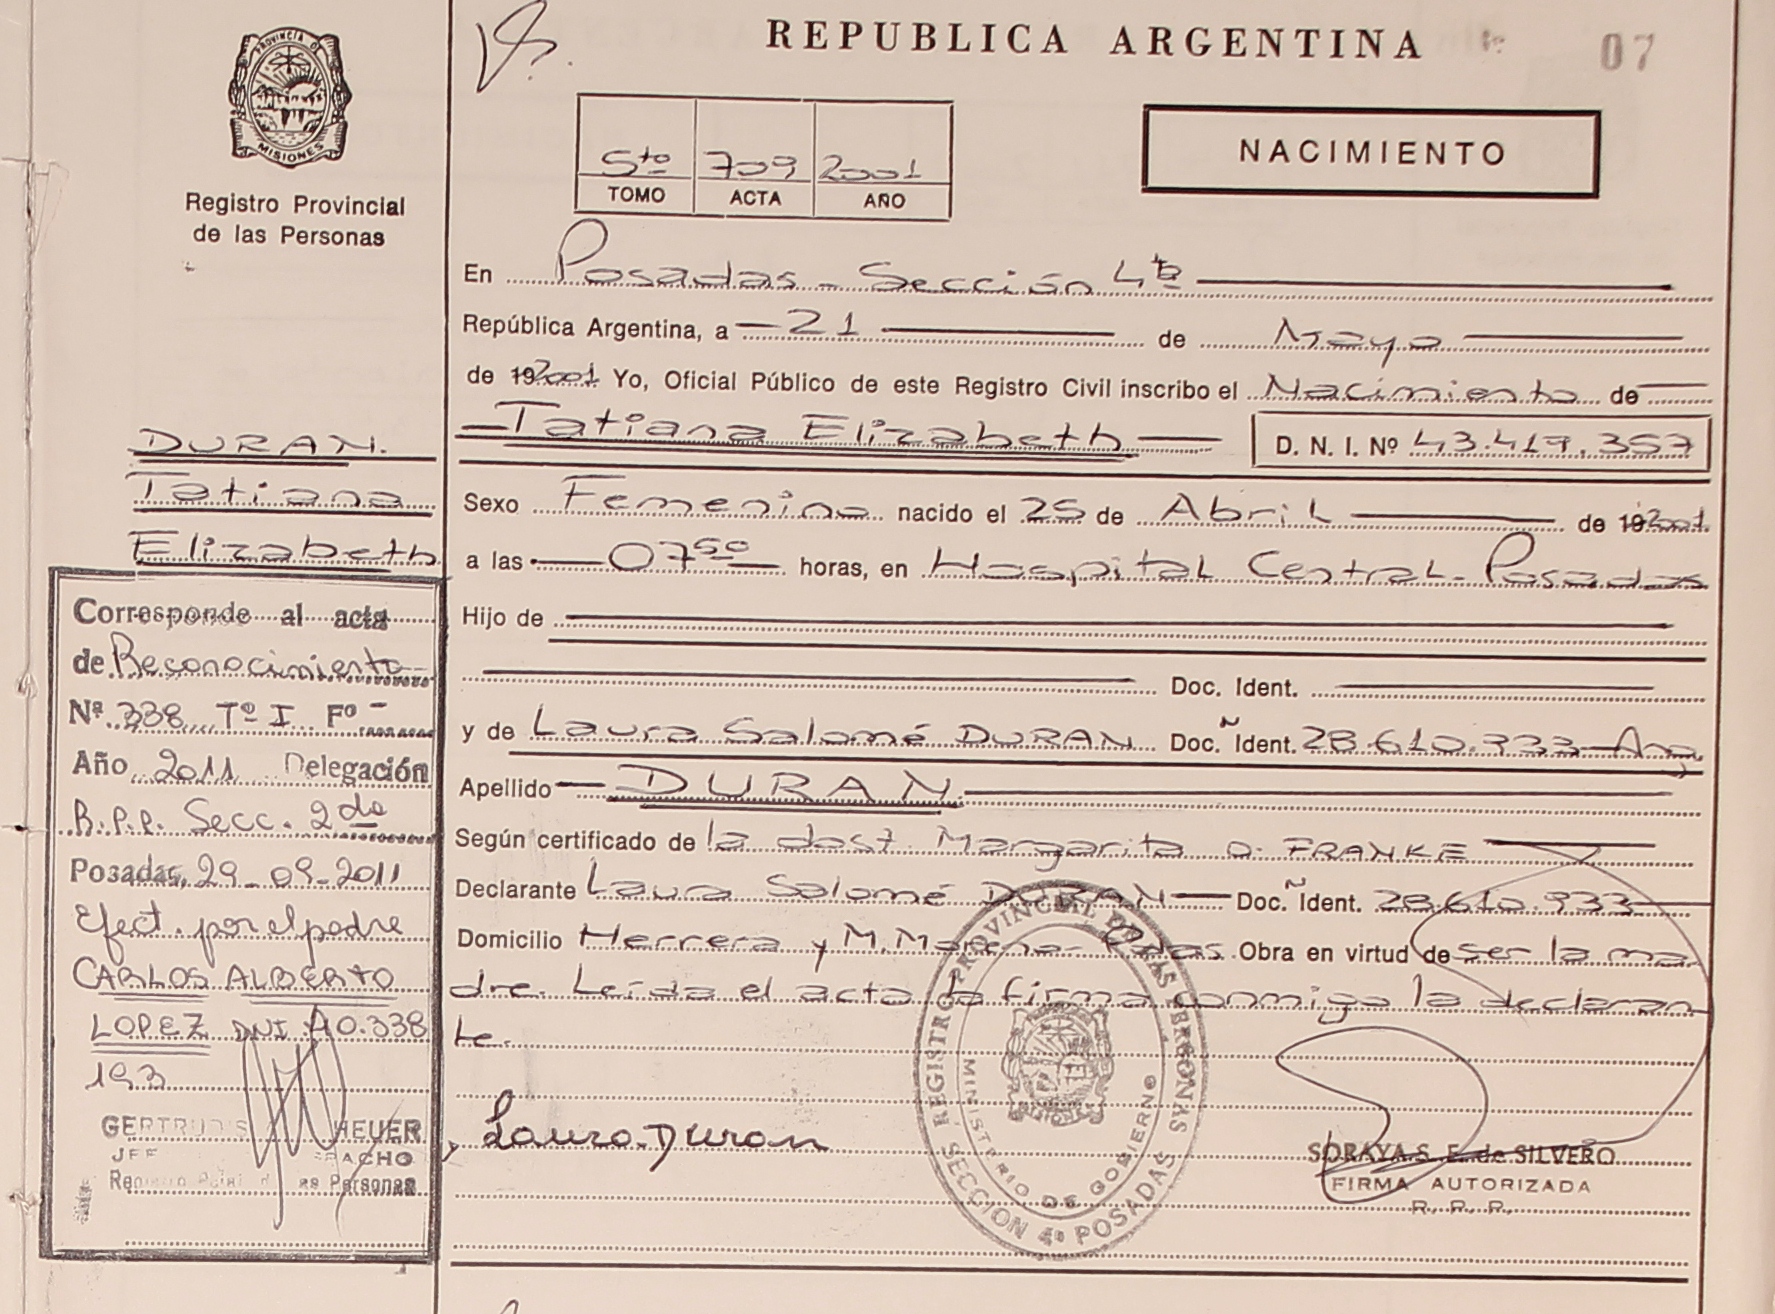 REPUBLICA ARGENTINA
07
PROVINCIA DE
MISIONES
Registro Provincial
de las Personas
5to 709 2001
TOMO ACTA AÑO
NACIMIENTO
En Posadas - Sección 4ta
República Argentina, a 21 de Mayo
de 192001 Yo, Oficial Público de este Registro Civil inscribo el Nacimiento de
Tatiana Elizabeth D. N. I. Nº 43.419.357
Sexo Femenino nacido el 25 de Abril de 192001
a las 07 50 horas, en Hospital Central - Posadas
Hijo de
Doc. Ident.
y de Laura Salomé DURAN Doc. Ident. 28.610.933 - Arg
Apellido DURAN
Según certificado de la dost. Margarita O. FRANKE
Declarante Laura Salomé DURAN Doc. Ident. 28.610.933
Domicilio Herrera y M. Moreno - Pdas. Obra en virtud de ser la ma
dre. Leída el acta la firma conmigo la declaran
te.
Laura Duran
REGISTRO PROVINCIAL DE LAS PERSONAS
MINISTERIO DE GOBIERNO
SECCION 4ª POSADAS
SORAYA S. E. de SILVERO
FIRMA AUTORIZADA
R. P. P.
DURAN.
Tatiana
Elizabeth
Corresponde al acta
de Reconocimiento
Nº 338 Tº I Fº -
Año 2011 Delegación
R.P.P. Secc. 2da
Posadas, 29-09-2011
Efect. por el padre
CARLOS ALBERTO
LOPEZ DNI 40.338
193
GERTRUDIS HEUER
Personas